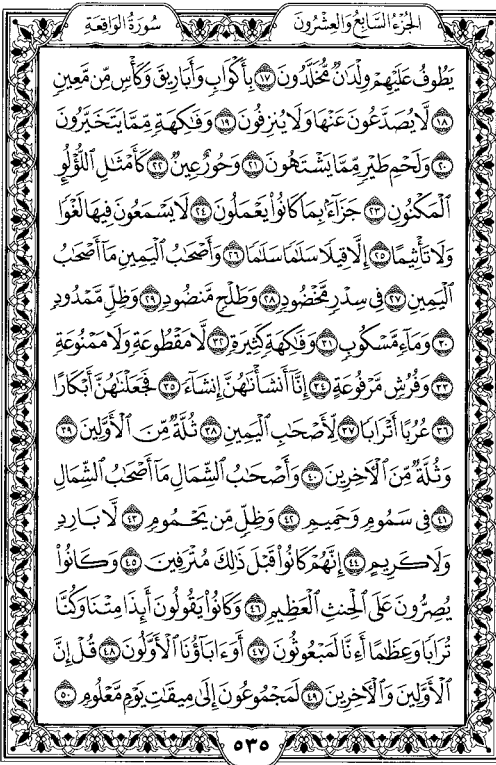 سُورَةُ الوَاقِعَةِ
الجُزْءُ السَّابِعُ وَالعِشْرُونَ
يَطُوفُ عَلَيْهِمْ وِلْدَٰنٌ مُّخَلَّدُونَ ١٧ بِأَكْوَابٍ وَأَبَارِيقَ وَكَأْسٍ مِّن مَّعِينٍ
١٨ لَّا يُصَدَّعُونَ عَنْهَا وَلَا يُنزِفُونَ ١٩ وَفَٰكِهَةٍ مِّمَّا يَتَخَيَّرُونَ
٢٠ وَلَحْمِ طَيْرٍ مِّمَّا يَشْتَهُونَ ٢١ وَحُورٌ عِينٌ ٢٢ كَأَمْثَٰلِ ٱللُّؤْلُوِٕ
ٱلْمَكْنُونِ ٢٣ جَزَآءًۢ بِمَا كَانُوا۟ يَعْمَلُونَ ٢٤ لَا يَسْمَعُونَ فِيهَا لَغْوًا
وَلَا تَأْثِيمًا ٢٥ إِلَّا قِيلًا سَلَٰمًا سَلَٰمًا ٢٦ وَأَصْحَٰبُ ٱلْيَمِينِ مَآ أَصْحَٰبُ
ٱلْيَمِينِ ٢٧ فِى سِدْرٍ مَّخْضُودٍ ٢٨ وَطَلْحٍ مَّنضُودٍ ٢٩ وَظِلٍّ مَّمْدُودٍ
٣٠ وَمَآءٍ مَّسْكُوبٍ ٣١ وَفَٰكِهَةٍ كَثِيرَةٍ ٣٢ لَّا مَقْطُوعَةٍ وَلَا مَمْنُوعَةٍ
٣٣ وَفُرُشٍ مَّرْفُوعَةٍ ٣٤ إِنَّآ أَنشَأْنَٰهُنَّ إِنشَآءً ٣٥ فَجَعَلْنَٰهُنَّ أَبْكَارًا
٣٦ عُرُبًا أَتْرَابًا ٣٧ لِّأَصْحَٰبِ ٱلْيَمِينِ ٣٨ ثُلَّةٌ مِّنَ ٱلْأَوَّلِينَ ٣٩
وَثُلَّةٌ مِّنَ ٱلْءَاخِرِينَ ٤٠ وَأَصْحَٰبُ ٱلشِّمَالِ مَآ أَصْحَٰبُ ٱلشِّمَالِ
٤١ فِى سَمُومٍ وَحَمِيمٍ ٤٢ وَظِلٍّ مِّن يَحْمُومٍ ٤٣ لَّا بَارِدٍ
وَلَا كَرِيمٍ ٤٤ إِنَّهُمْ كَانُوا۟ قَبْلَ ذَٰلِكَ مُتْرَفِينَ ٤٥ وَكَانُوا۟
يُصِرُّونَ عَلَى ٱلْحِنثِ ٱلْعَظِيمِ ٤٦ وَكَانُوا۟ يَقُولُونَ أَئِذَا مِتْنَا وَكُنَّا
تُرَابًا وَعِظَٰمًا أَءِنَّا لَمَبْعُوثُونَ ٤٧ أَوَءَابَآؤُنَا ٱلْأَوَّلُونَ ٤٨ قُلْ إِنَّ
ٱلْأَوَّلِينَ وَٱلْءَاخِرِينَ ٤٩ لَمَجْمُوعُونَ إِلَىٰ مِيقَٰتِ يَوْمٍ مَّعْلُومٍ ٥٠
٥٣٥